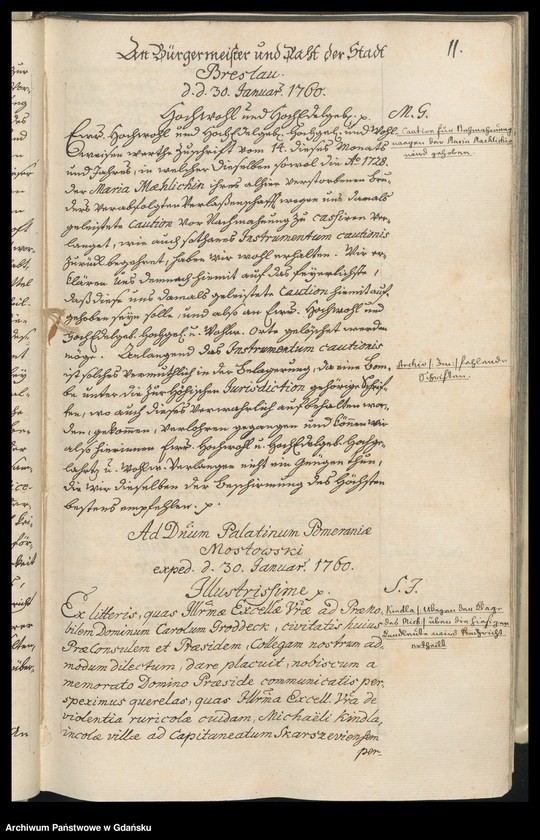 11.
An Bürgermeister und Raht der Stadt
Breslau.
d. d. 30. Januar. 1760.
Hochwohl und HochEdelgeb. p.
M. G.
Caution für Nachmahnung
wegen der Maria Machlichin
wird gehoben.
Eurs. Hochwohl und HochEdelgeb. Hochgel. und Wohl
Weisen werthe Zuschrift vom 14. dieses Monats
und Jahres, in welcher dieselben sowol die Ao. 1728.
der Maria Mahlichin ihres alhier verstorbenen Bru-
ders verabfolgten Verlaßenschafft wegen uns damals
geleistete Caution vor Nachmahnung zu cassiren ver-
langet, wie auch sothanes Instrumentum cautionis
zurück begehret, haben wir wohl erhalten. Wir er-
klären uns demnach hiemit auf das feyerlichste,
daß diese uns damals geleistete Caution hiemit auf-
gehoben seyn solle, und also an Eurs. Hochwohl und
HochEdelgeb. Hochgel. u. Wohlw. Orte gelöschet werden
möge. Anlangend das Instrumentum cautionis
ist solches vermuthlich in der Belagerung, da eine Bom-
be unter die zur höchischen Jurisdiction gehörige Schrif-
ten, wo auch dieses verwahrlich aufbehalten wor-
den, gekommen, verlohren gegangen und können wir
also hierinnen Eurs. Hochwohl u. HochEdelgeb. Hochge-
lahrtz u. Wohlw. Verlangen nicht ein Genügen thun,
die wir dieselben der Beschirmung des Höchsten
bestens empfehlen. p.
Archiv
fehlende
Schrifften.
Ad Dnum Palatinum Pomeraniæ
Mostowski
exped. d. 30. Januar. 1760.
Illustrissime p.
S. T.
Kindla
über den hiesigen
Nachricht
ertheilt
Ex litteris, quas Illrmæ Excellæ Vræ ad Præno-
bilem Dominum Carolum Groddeck, civitatis huius
PræConsulem et Præsidem, Collegam nostram ad-
modum dilectum, dare placuit, nobiscum a
memorato Domino Præside communicatis per-
speximus querelas, quas Illrma Excell. Vra de
violentia ruricolæ cuidam, Michaëli Kindla,
incolæ villæ ad Capitaneatum Skarszeviensem
per-
Archiwum Państwowe w Gdańsku